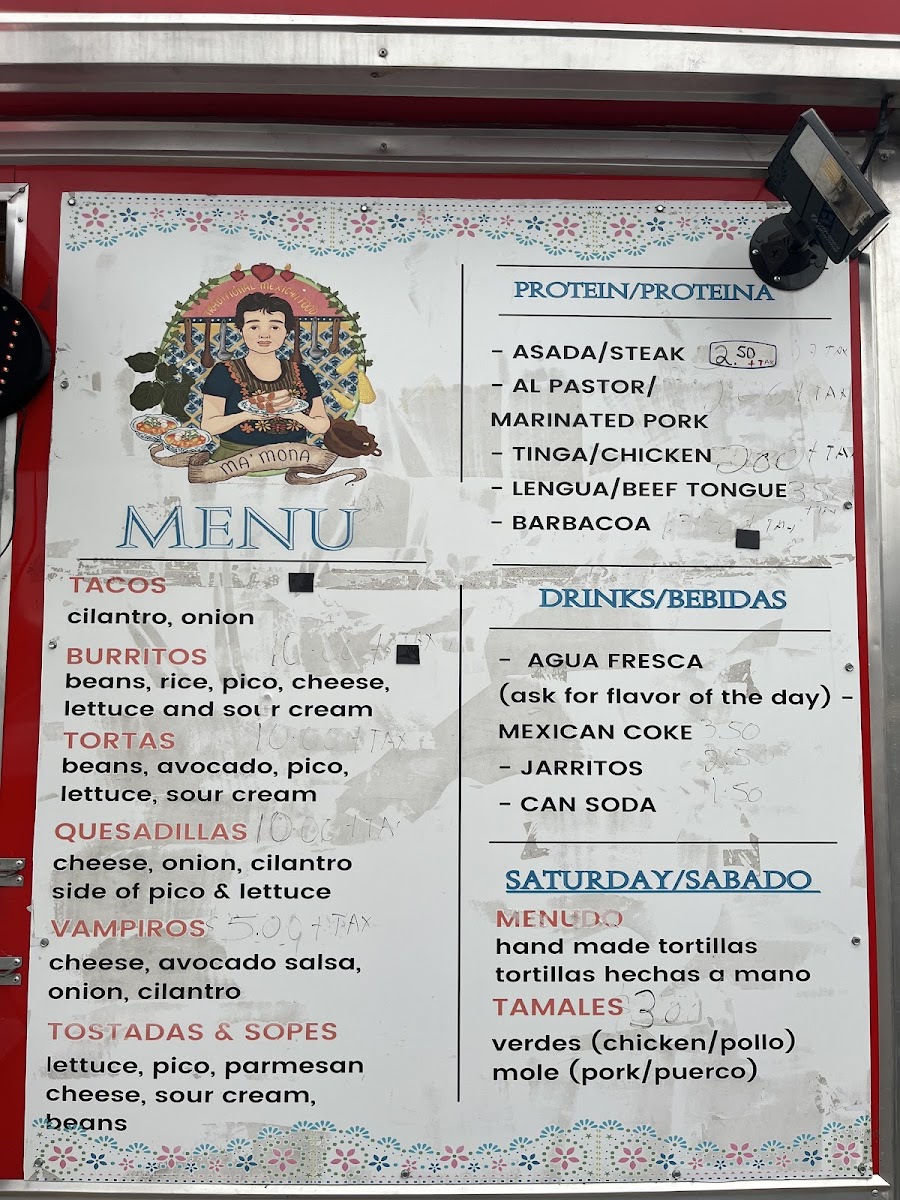 TRADITIONAL MEXICAN FOOD
MA'MONA
MENU
TACOS
cilantro, onion
BURRITOS 10.00 + TAX
beans, rice, pico, cheese,
lettuce and sour cream
TORTAS 10.00 + TAX
beans, avocado, pico,
lettuce, sour cream
QUESADILLAS 10.00 + TA
cheese, onion, cilantro
side of pico & lettuce
VAMPIROS 5.00 + TAX
cheese, avocado salsa,
onion, cilantro
TOSTADAS & SOPES
lettuce, pico, parmesan
cheese, sour cream,
beans
PROTEIN/PROTEINA
- ASADA/STEAK 2.50 + TAX TAX
- AL PASTOR/ TAX
MARINATED PORK
- TINGA/CHICKEN + TAX
- LENGUA/BEEF TONGUE
- BARBACOA
DRINKS/BEBIDAS
- AGUA FRESCA
(ask for flavor of the day) -
MEXICAN COKE 3.50
- JARRITOS 2.50
- CAN SODA 1.50
SATURDAY/SABADO
MENUDO
hand made tortillas
tortillas hechas a mano
TAMALES 3.00
verdes (chicken/pollo)
mole (pork/puerco)